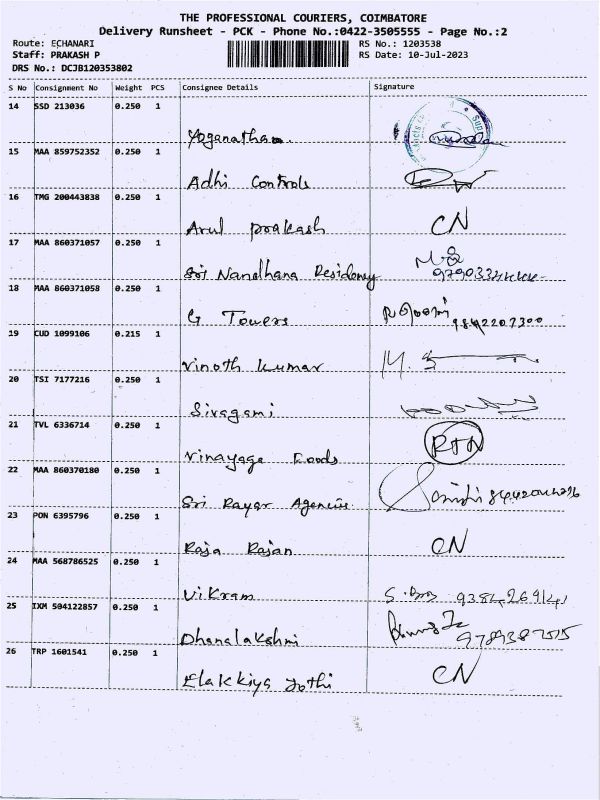 THE PROFESSIONAL COURIERS, COIMBATORE
Delivery Runsheet - PCK - Phone No.:0422-3505555 - Page No.:2
Route: ECHANARI RS No.: 1203538
Staff: PRAKASH P RS Date: 10-Jul-2023
DRS No.: DCJB120353802
S No Consignment No Weight PCS Consignee Details Signature
14 SSD 213036 0.250 1
Yoganathan
15 MAA 859752352 0.250 1
Adhi Controls
16 TMG 200443838 0.250 1
Arul prakash CN
17 MAA 860371057 0.250 1
Sri Nandhana Residency
18 MAA 860371058 0.250 1
G Towers 9842207300
19 CUD 1099106 0.215 1
Vinoth kumar
20 TSI 7177216 0.250 1
Sivagami
21 TVL 6336714 0.250 1
Vinayaga Foods RTN
22 MAA 860370180 0.250 1
Sri Rayar Agencies
23 PON 6395796 0.250 1
Raja Rajan CN
24 MAA 568786525 0.250 1
Vikram
25 IXM 504122857 0.250 1
Dhanalakshmi
26 TRP 1601541 0.250 1
Elakkiya Jothi CN